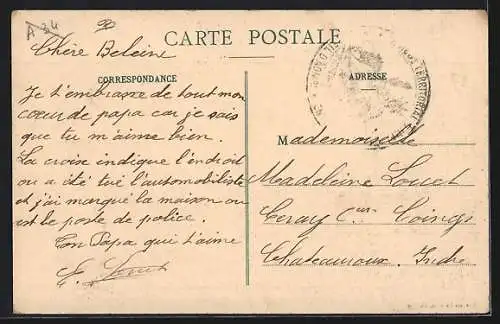 A 34
CARTE POSTALE
Chère Beleine
CORRESPONDANCE
ADRESSE
TERRITORIAL
Je t'embrasse de tout mon
coeur de papa car je sais
que tu m'aime bien.
La croise indique l'endroit
ou a été tué l'automobiliste
et j'ai marqué la maison ou
est le poste de police.
Ton Papa qui t'aime
Mademoiselle
Madeleine Louet
Ceray Cne Coings
Chateauroux. Indre